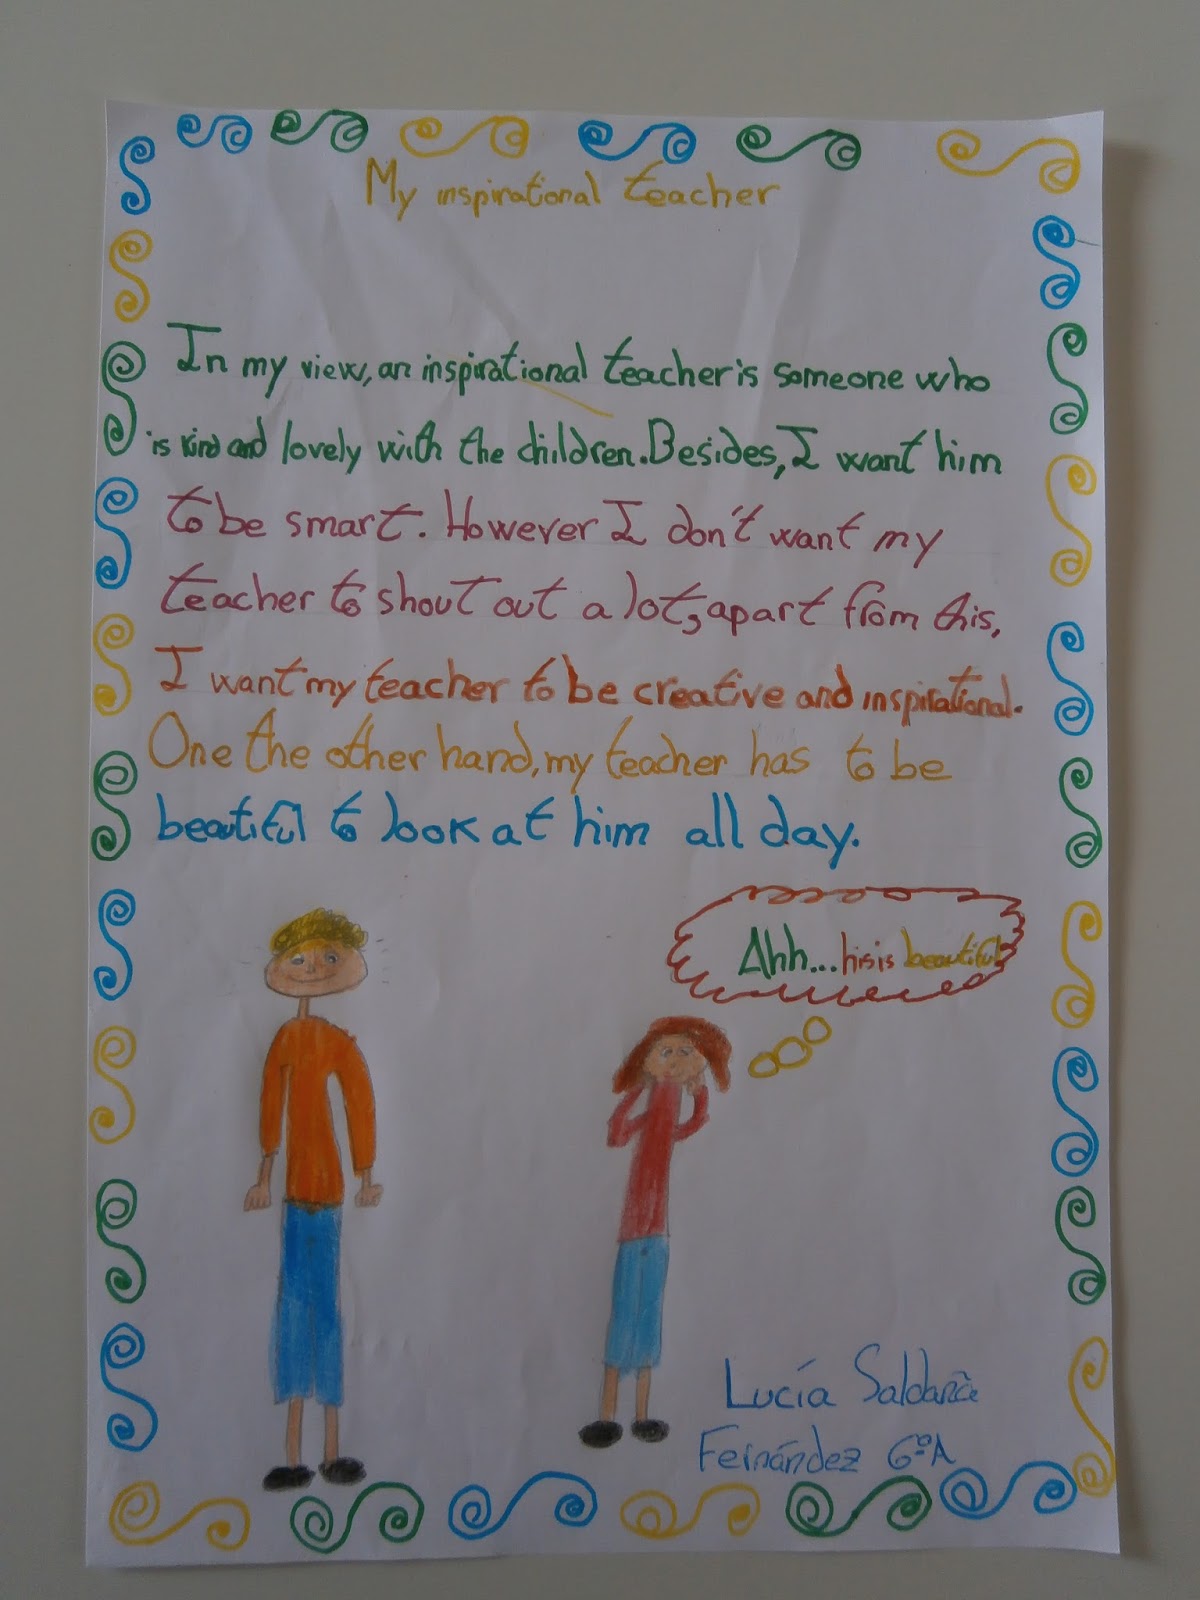 My inspirational teacher
In my view, an inspirational teacher is someone who
is kind and lovely with the children. Besides, I want him
to be smart. However I don't want my
teacher to shout out a lot, apart from this,
I want my teacher to be creative and inspirational.
One the other hand, my teacher has to be
beautiful to look at him all day.
Ahh... his is beautiful
Lucía Saldaña
Fernández 6ºA